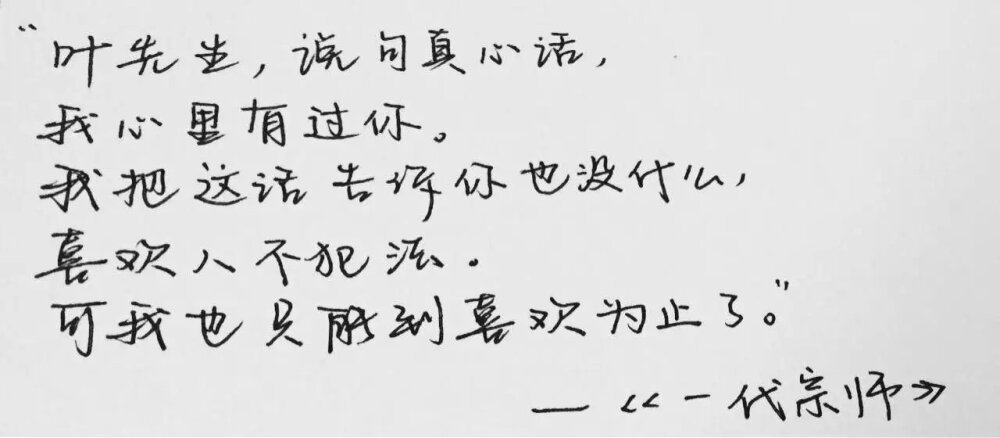 “叶先生，说句真心话，
我心里有过你。
我把这话告诉你也没什么，
喜欢人不犯法．
可我也只能到喜欢为止了。”
—《一代宗师》